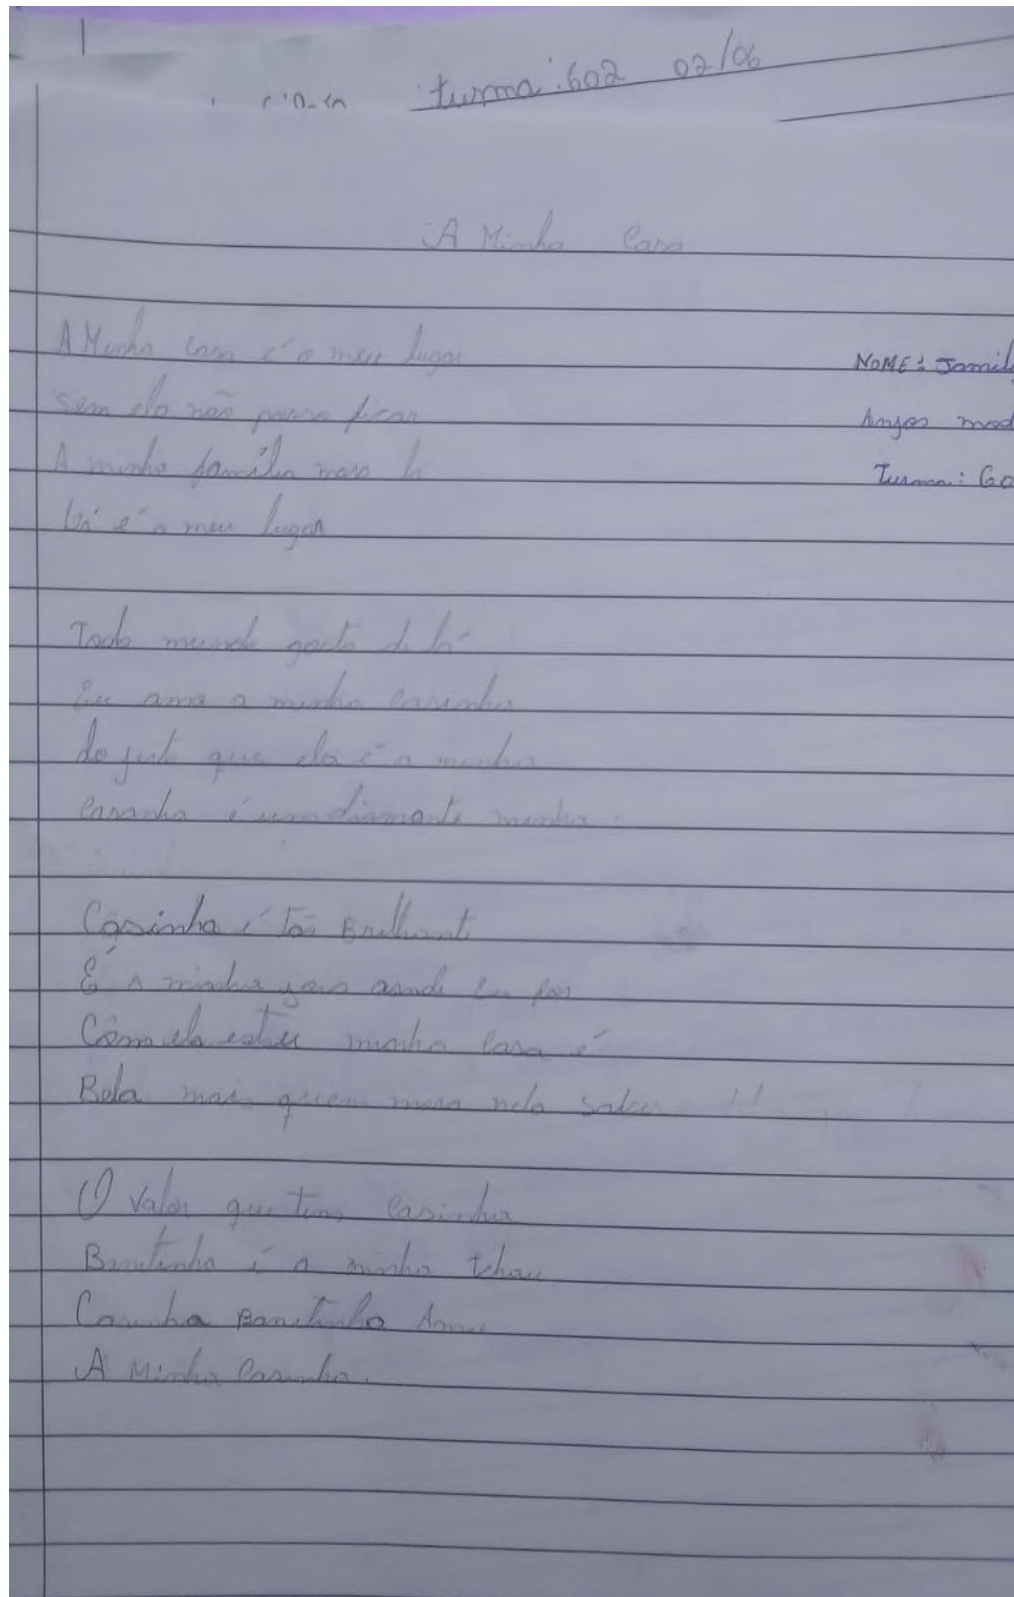 turma: 602 02/06
A Minha Casa
A Minha casa é o meu lugar
sem ela não posso ficar
A minha família mora lá
lá é o meu lugar
NOME: Jamil
Anjos mad
Turma: 60
Todo mundo gosta de lá
Eu amo a minha casinha
do jeito que ela é a minha
casinha é um diamante minha.
Casinha é tão Brilhante
É a minha
Com ela estou minha casa é
Bela mais quem mora nela sabe
O valor que tem casinha
Bonitinha é a minha
Casinha Bonitinha Amo
A Minha Casinha.